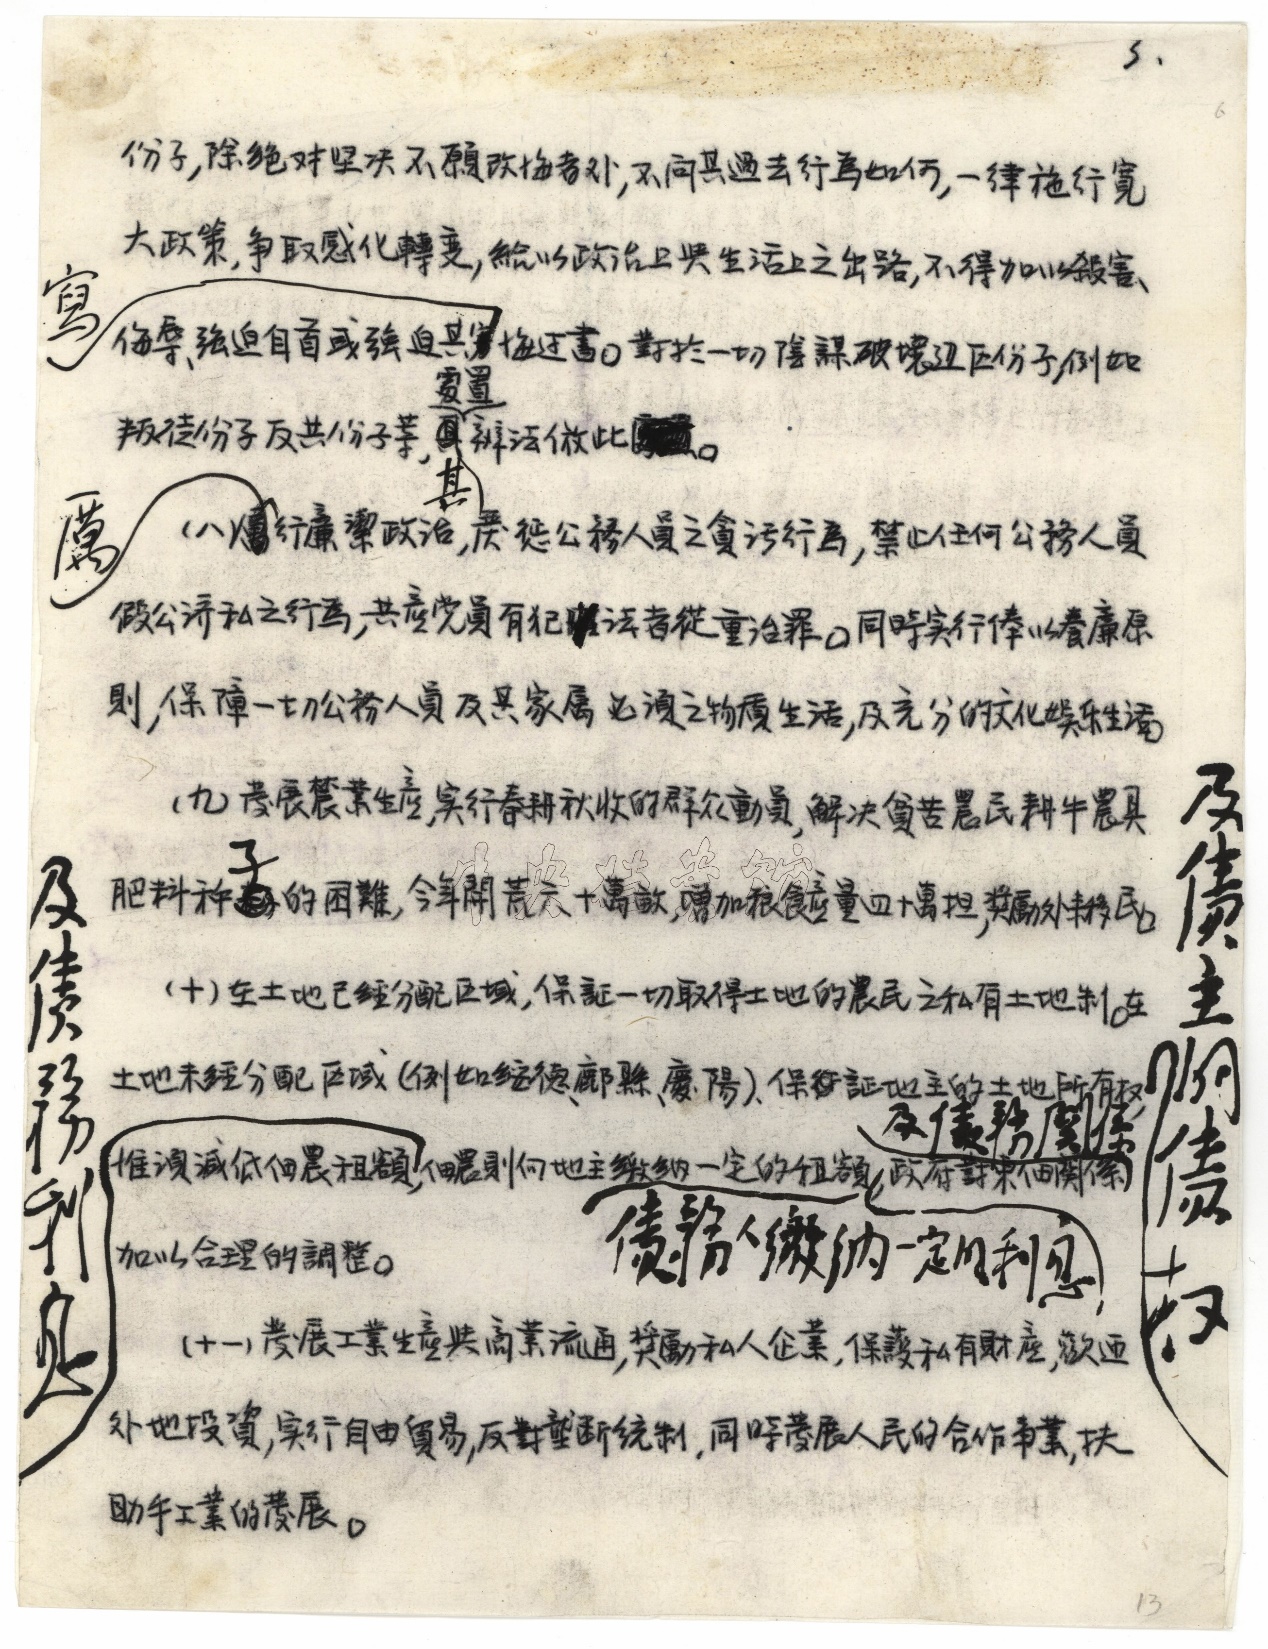 5.
6
份子,除绝对坚决不願改悔者外,不问其過去行為如何,一律施行寬
大政策,争取感化轉变,給以政治上與生活上之出路,不得加以殺害、
寫
侮辱、強迫自首或強迫其寫悔过書。對於一切陰謀破壞边区份子,例如
處置
叛徒份子反共份子等,其辦法倣此。
其
厲
(八)厲行廉潔政治,严惩公務人員之貪污行為,禁止任何公務人員
假公济私之行為,共產党員有犯法者從重治罪。同時实行俸以養廉原
則,保障一切公務人員及其家属必須之物質生活,及充分的文化娛乐生活。
(九)發展農業生產,实行春耕秋收的群众動員,解决貧苦農民耕牛農具
子
肥料种的困難,今年開荒六十萬畝,增加粮食產量四十萬担,奬勵外来移民。
中央档案馆
(十)在土地已經分配区域,保証一切取得土地的農民之私有土地制。在
土地未經分配区域(例如绥德、鄜縣、慶陽),保証地主的土地所有权,
及債主的債权
及債務關係
惟須減低佃農租額,佃農則向地主繳納一定的租額,政府對東佃関係
及債務利息
債務人繳納一定的利息
加以合理的調整。
(十一)發展工業生產與商業流通,奬勵私人企業,保護私有財產,歡迎
外地投資,实行自由貿易,反對壟断統制,同時發展人民的合作事業,扶
助手工業的發展。
13